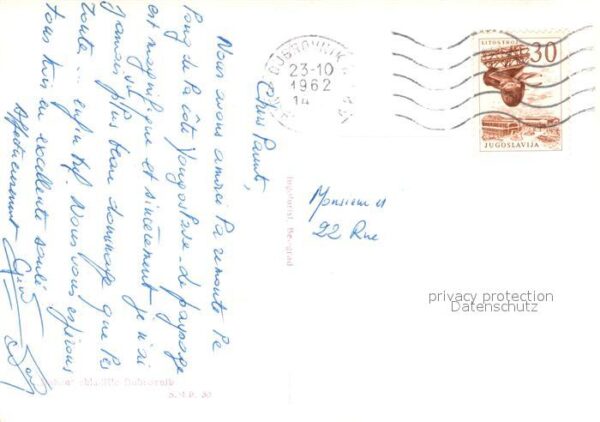 Chers Parents,
Nous avons amorcé la remontée le
long de la côte Yougoslave - le paysage
est magnifique et sincèrement je n'ai
jamais vu plus beau dommage que les
toute ... enfin bref. Nous vous espérons
tous très en excellente santé
Affectueusement
DUBROVNIK
23-10
1962
14
LITOSTROJ
30
JUGOSLAVIJA
Monsieur et
22 Rue
Jugoturist, Beograd
privacy protection
Datenschutz
Dubrovnik